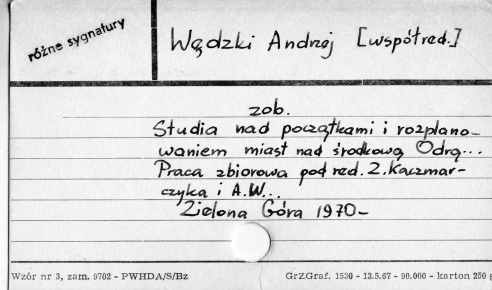 różne sygnatury
Wędzki Andrzej [współred.]
zob.
Studia nad początkami i rozplano-
waniem miast nad środkową Odrą...
Praca zbiorowa pod red. Z. Kaczmar-
czyka i A.W...
Zielona Góra 1970-
Wzór nr 3, zam. 9702 - PWHDA/S/Bz
GrZGraf. 1530 - 13.5.67 - 90.000 - karton 250 g